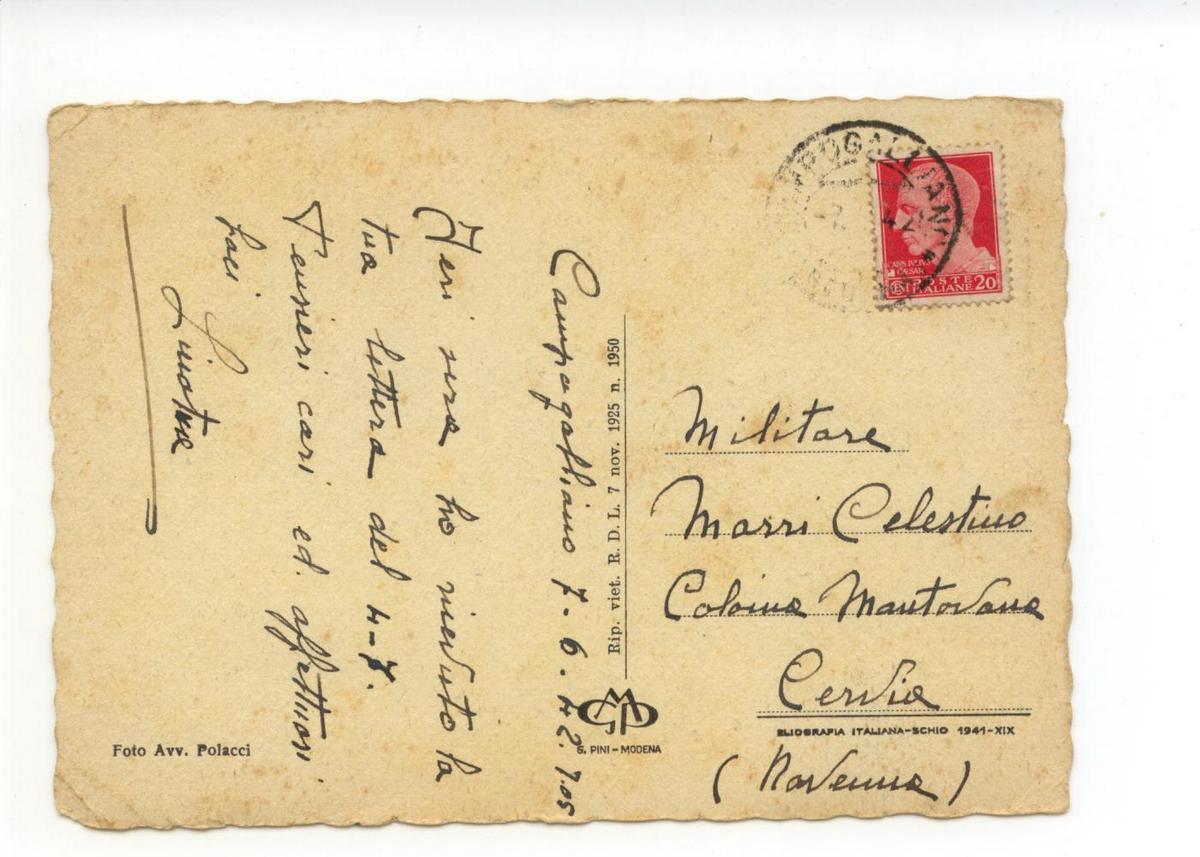 Campogalliano 7-6.42.
Ieri sera ho ricevuto la
tua lettera del 4-7.
Pensieri cari ed. affettuosi
baci
Foto Avv. Polacci
Rip. viet. R. D. L. 7 nov. 1925 n. 1950
G. PINI-MODENA
POSTE
ITALIANE 20
CAESAR
Militare
Marri Celestino
Colonia Mantovana
Cervia
ELIOGRAFIA ITALIANA-SCHIO 1941-XIX
(Ravenna)